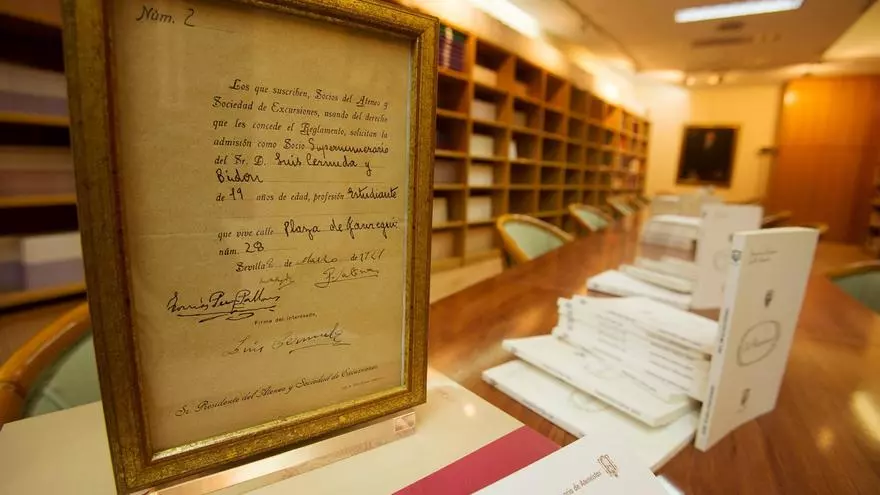 Núm. 2
Los que suscriben, Socios del Ateneo y
Sociedad de Excursiones, usando del derecho
que les concede el Reglamento, solicitan la
admisión como Socio Supernumerario
del Sr. D. Luis Cernuda y
Bidon
de 19 años de edad, profesión Estudiante
que vive calle Plaza de
núm. 28
Sevilla de de 1921
Firma del interesado,
Luis Cernuda
Sr. Presidente del Ateneo y Sociedad de Excursiones
de Ateneístas